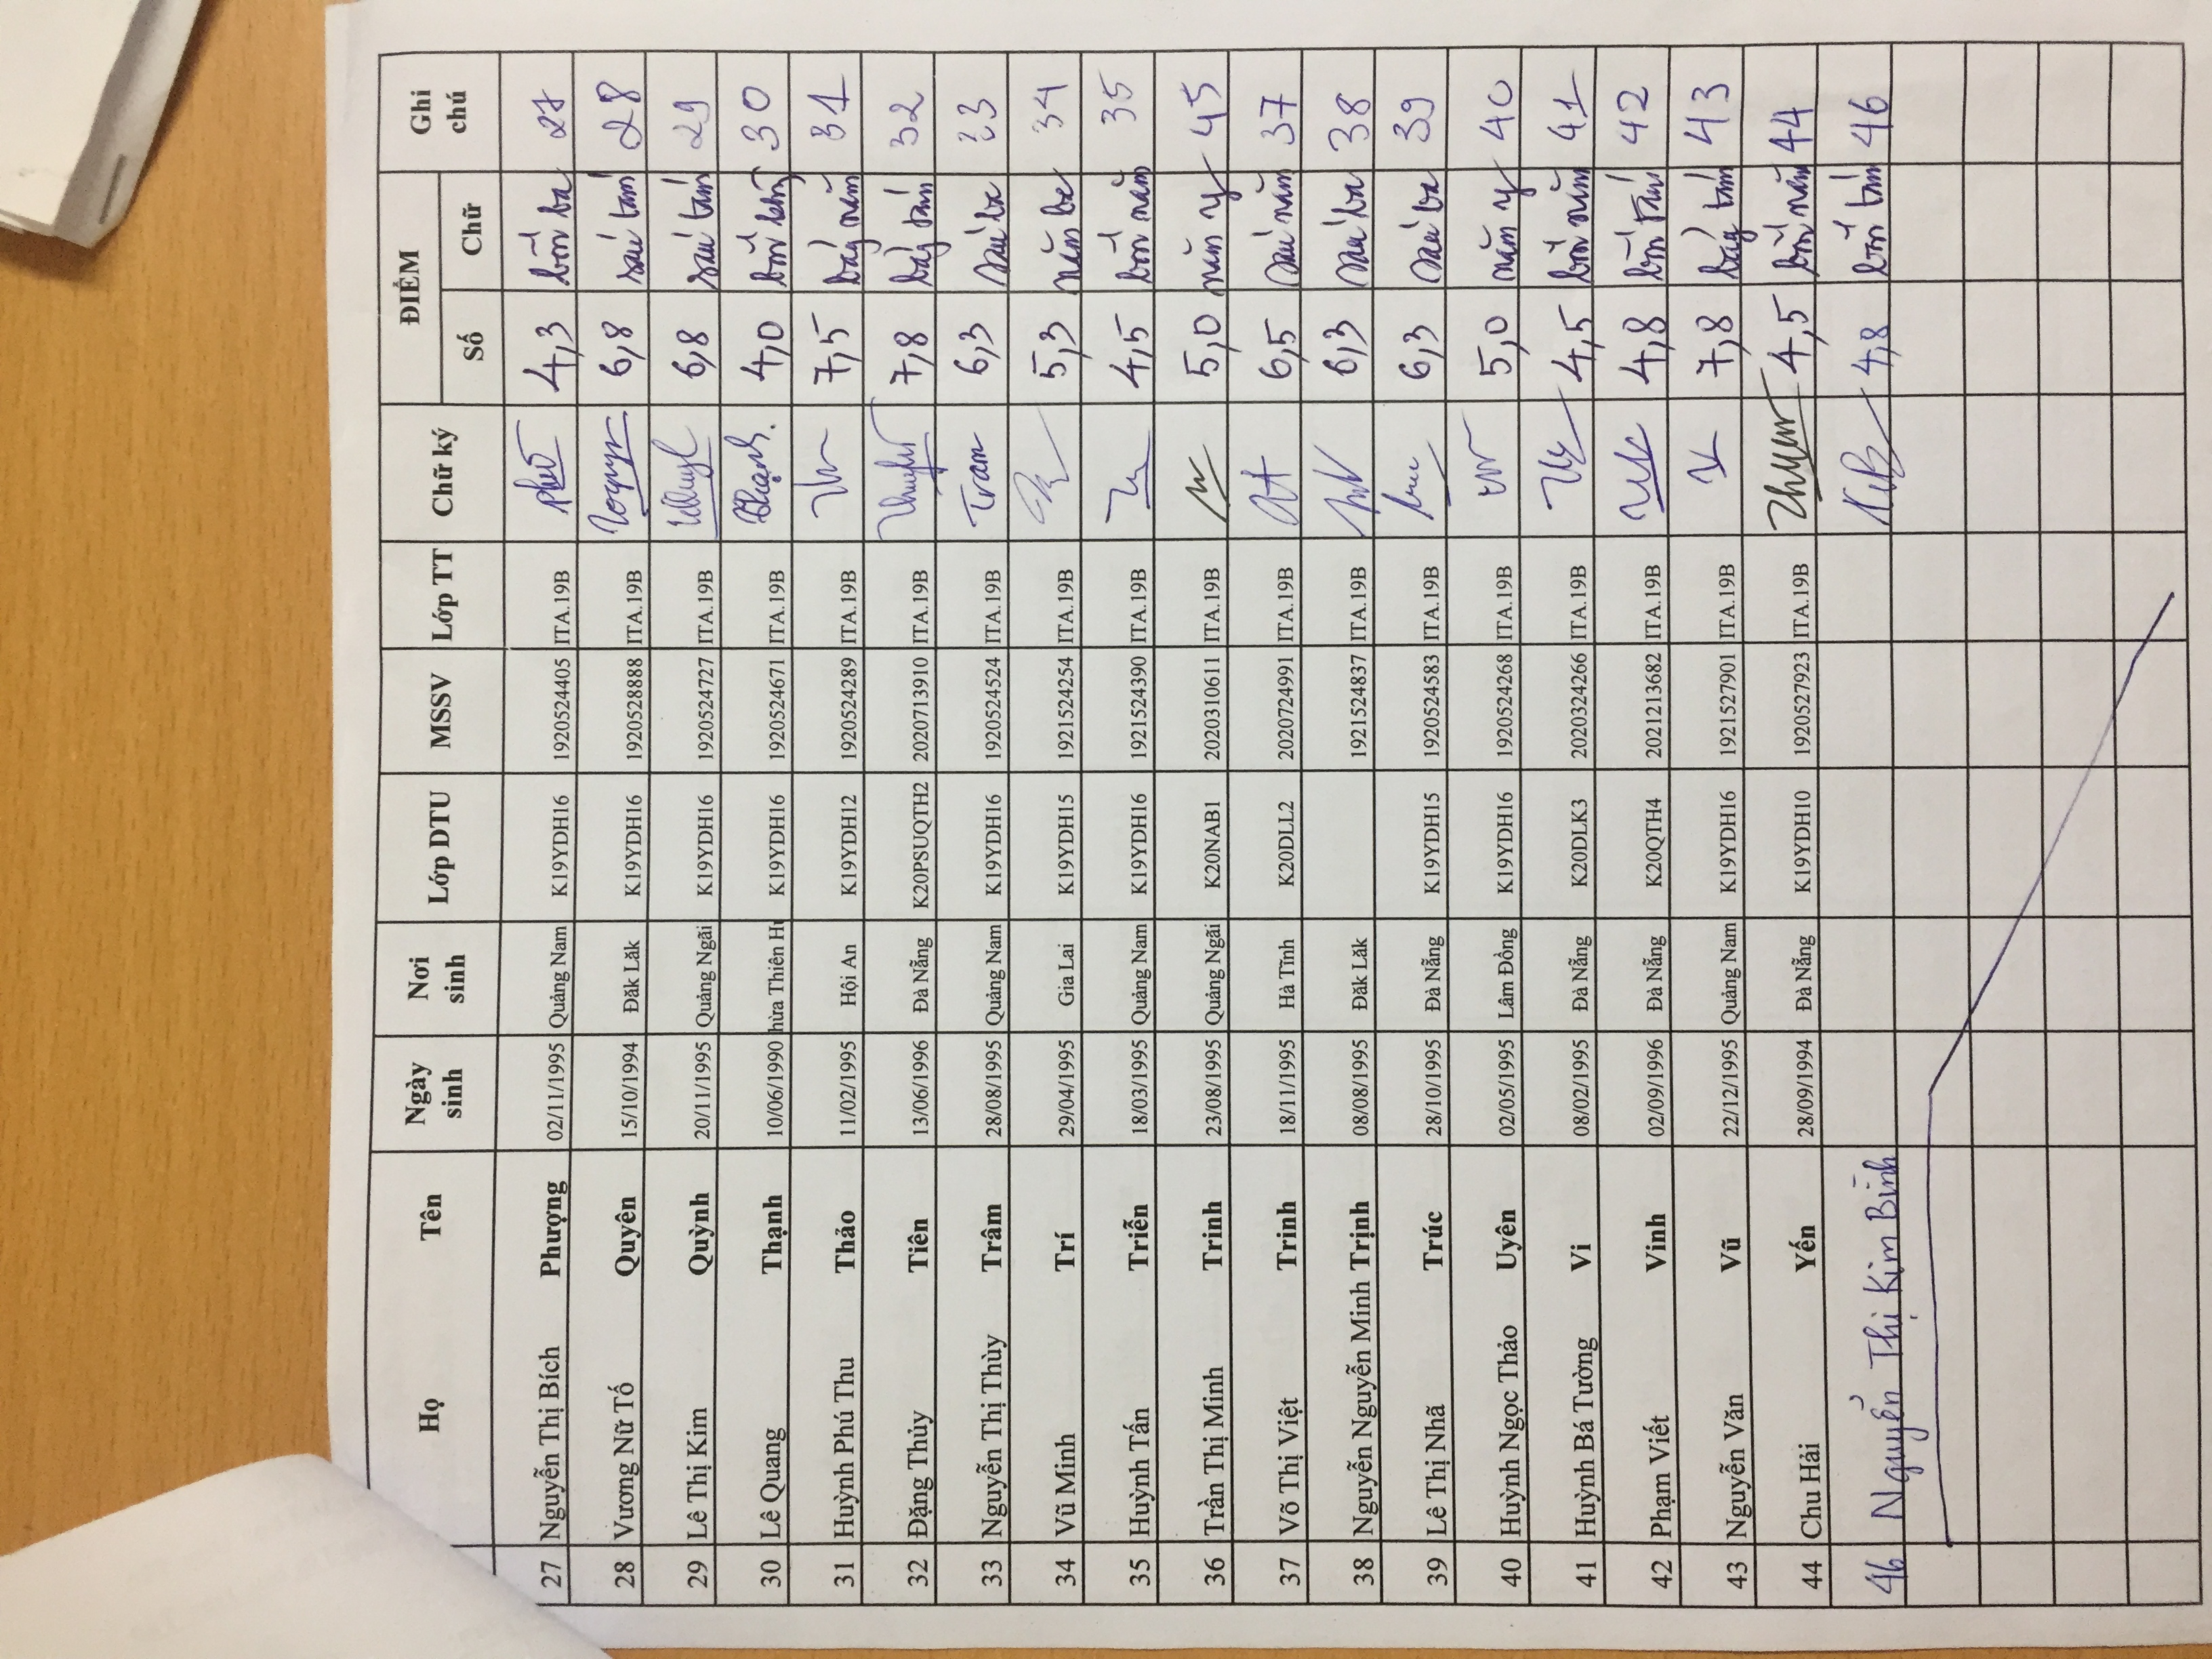 Họ Tên Ngày sinh Nơi sinh Lớp DTU MSSV Lớp TT Chữ ký ĐIỂM Ghi chú
Số Chữ
27 Nguyễn Thị Bích Phượng 02/11/1995 Quảng Nam K19YDH16 1920524405 ITA.19B 4,3 bốn ba 27
28 Vương Nữ Tố Quyên 15/10/1994 Đăk Lăk K19YDH16 1920528888 ITA.19B 6,8 sáu tám 28
29 Lê Thị Kim Quỳnh 20/11/1995 Quảng Ngãi K19YDH16 1920524727 ITA.19B 6,8 sáu tám 29
30 Lê Quang Thạnh 10/06/1990 hừa Thiên Hu K19YDH16 1920524671 ITA.19B Thạnh. 4,0 bốn không 30
31 Huỳnh Phú Thu Thảo 11/02/1995 Hội An K19YDH12 1920524289 ITA.19B 7,5 bảy năm 31
32 Đặng Thủy Tiên 13/06/1996 Đà Nẵng K20PSUQTH2 2020713910 ITA.19B 7,8 bảy tám 32
33 Nguyễn Thị Thùy Trâm 28/08/1995 Quảng Nam K19YDH16 1920524524 ITA.19B Tram 6,3 sáu ba 33
34 Vũ Minh Trí 29/04/1995 Gia Lai K19YDH15 1921524254 ITA.19B 5,3 năm ba 34
35 Huỳnh Tấn Triển 18/03/1995 Quảng Nam K19YDH16 1921524390 ITA.19B 4,5 bốn năm 35
36 Trần Thị Minh Trinh 23/08/1995 Quảng Ngãi K20NAB1 2020310611 ITA.19B 5,0 năm y 45
37 Võ Thị Việt Trinh 18/11/1995 Hà Tĩnh K20DLL2 2020724991 ITA.19B 6,5 sáu năm 37
38 Nguyễn Nguyễn Minh Trịnh 08/08/1995 Đăk Lăk 1921524837 ITA.19B 6,3 sáu ba 38
39 Lê Thị Nhã Trúc 28/10/1995 Đà Nẵng K19YDH15 1920524583 ITA.19B 6,3 sáu ba 39
40 Huỳnh Ngọc Thảo Uyên 02/05/1995 Lâm Đồng K19YDH16 1920524268 ITA.19B 5,0 năm y 40
41 Huỳnh Bá Tường Vi 08/02/1995 Đà Nẵng K20DLK3 2020324266 ITA.19B 4,5 bốn năm 41
42 Phạm Viết Vinh 02/09/1996 Đà Nẵng K20QTH4 2021213682 ITA.19B 4,8 bốn tám 42
43 Nguyễn Văn Vũ 22/12/1995 Quảng Nam K19YDH16 1921527901 ITA.19B 7,8 bảy tám 43
44 Chu Hải Yến 28/09/1994 Đà Nẵng K19YDH10 1920527923 ITA.19B 4,5 bốn năm 44
46 Nguyễn Thị Kim Bình 4,8 bốn tám 46